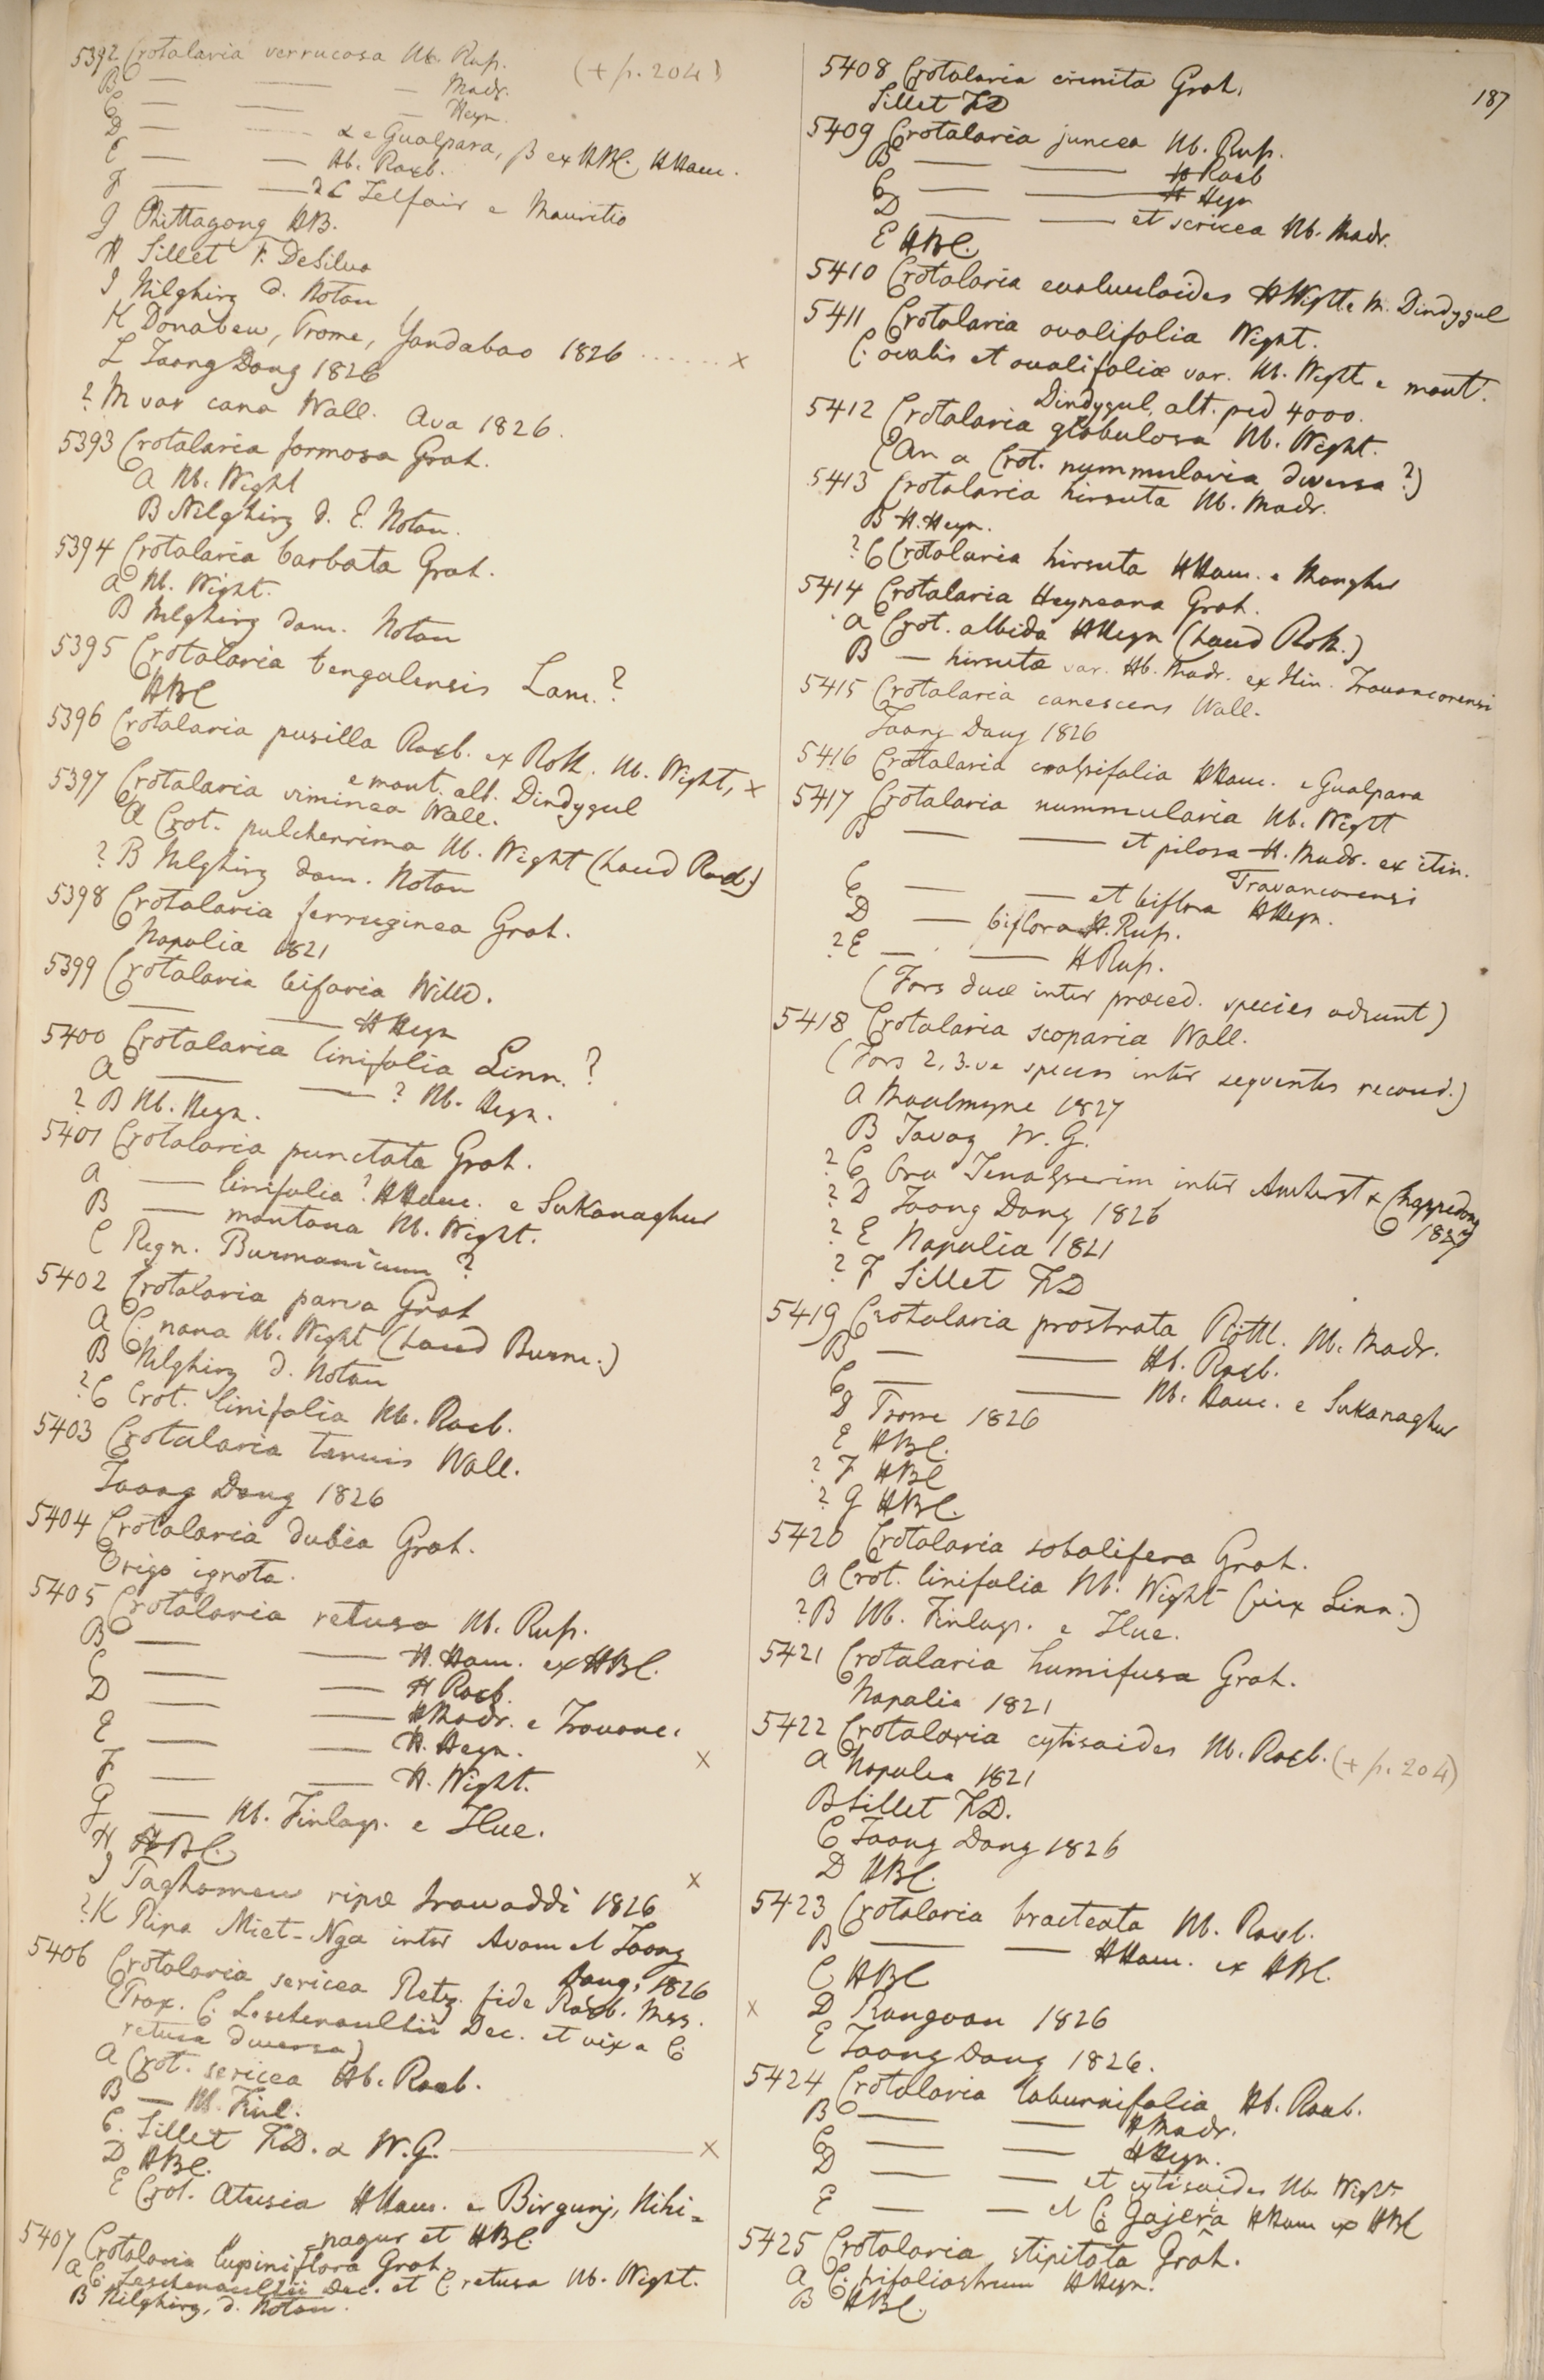 187
5392 Crotalaria verrucosa Hb. Rup. (+ p. 204)
B — — — Madr.
C — — — Heyn.
D — — α e Gualpara, β ex HBC. HHam.
E — — Hb. Roxb.
F — — Telfair e Mauritio
G Chittagong HB.
H Sillet F. DeSilva
I Nilghiry d. Noton
K Donabew, Prome, Yandabao 1826 ...... x
L Taong Dong 1826
? M var cana Wall. Ava 1826.
5393 Crotalaria formosa Grah.
A Hb. Wight
B Nilghiry d. E. Noton.
5394 Crotalaria barbata Grah.
A Hb. Wight.
B Nilghiry dom. Noton
5395 Crotalaria bengalensis Lam.?
HBC
5396 Crotalaria pusilla Roxb. ex Roth. Hb. Wight, x
e mont. alt. Dindygul
5397 Crotalaria viminea Wall.
A Crot. pulcherrima Hb. Wight (haud Roxb.)
? B Nilghiry dom. Noton
5398 Crotalaria ferruginea Grah.
Napalia 1821
5399 Crotalaria bifaria Willd.
— — H Heyn
5400 Crotalaria linifolia Linn.?
A — — ? Hb. Heyn.
? B Hb. Heyn.
5401 Crotalaria punctata Grah.
A — linifolia? HHam. e Sukanaghur
B — montana Hb. Wight.
C Regn. Burmanicum ?
5402 Crotalaria parva Grah
A C. nana Hb. Wight (haud Burm.)
B Nilghiry d. Noton
? C Crot. linifolia Hb. Roxb.
5403 Crotalaria tenuis Wall.
Taong Dong 1826
5404 Crotalaria dubia Grah.
Origo ignota.
5405 Crotalaria retusa Hb. Rup.
B — — H. Ham. ex HBC.
C — — H Roxb.
D — — HMadr. e Travanc.
E — — H. Heyn.
F — — H. Wight. x
G — Hb. Finlays. e Hue.
H HBC.
I Taghomew ripæ Irawaddi 1826 x
? K Ripa Miet-Nga inter Avam et Taong
Dong, 1826
5406 Crotalaria sericea Retz. fide Roxb. Mss.
(Prox. C. Leschenaultii Dec. et vix a C.
retusa diversa)
A Crot. sericea Hb. Roxb.
B — Hb. Finl.
C. Sillet FD. & W.G. — x
D HBC.
E Crot. Atusia HHam. e Birgunj, Nihi=
nagur et HBC.
5407 Crotalaria lupiniflora Grah.
A C. Leschenaultii Dec. et C. retusa Hb. Wight.
B Nilghiry, d. Noton.
5408 Crotalaria crinita Grah.
Sillet FD
5409 Crotalaria juncea Hb. Rup.
B — — H Roxb
C — — H Heyn
D — — et sericea Hb. Madr.
E HBC.
5410 Crotalaria evolvuloides HWight e M. Dindygul
5411 Crotalaria ovalifolia Wight.
C. ovalis et ovalifoliæ var. Hb. Wight e mont.
Dindygul, alt. ped 4000.
5412 Crotalaria globulosa Hb. Wight.
(An a Crot. nummularia diversa?)
5413 Crotalaria hirsuta Hb. Madr.
B H. Heyn.
? C Crotalaria hirsuta HHam. e Monghir
5414 Crotalaria Heyneana Grah.
A Crot. albida HHeyn (haud Roth.)
B — hirsutæ var. Hb. Madr. ex Itin. Travancorensi
5415 Crotalaria canescens Wall.
Taong Dong 1826
5416 Crotalaria HHam. e Gualpara
5417 Crotalaria nummularia Hb. Wight
B — — et pilosa H. Madr. ex itin.
Travancorensi
C — — et biflora HHeyn.
D — biflora H. Rup.
? E — — H Rup.
(Fors duæ inter præced. species adsunt)
5418 Crotalaria scoparia Wall.
(Fors 2, 3-ve species inter sequentes recond.)
A Moalmyne 1827
B Tavoy W. G.
? C Ora Tenasserim inter Amherst & Chappedong
1827
? D Taong Dong 1826
? E Napalia 1821
? F Sillet FD
5419 Crotalaria prostrata Rottl. Hb. Madr.
B — — Hb. Roxb.
C — — Hb. Ham. e Sukanaghur
D Prome 1826
E HBC.
? F HBC
? G HBC.
5420 Crotalaria sobolifera Grah.
A Crot. linifolia Hb. Wight (vix Linn.)
? B Hb. Finlays. e Hue.
5421 Crotalaria humifusa Grah.
Napalia 1821
5422 Crotalaria cytisoides Hb. Roxb. (+ p. 204)
A Napalia 1821
B Sillet FD.
C Taong Dong 1826
D HBC.
5423 Crotalaria bracteata Hb. Roxb.
B — — HHam. ex HBC.
C HBC
x D Rangoon 1826
E Taong Dong 1826.
5424 Crotalaria laburnifolia Hb. Roxb.
B — — HMadr.
C — — HHeyn.
D — — et cytisoides Hb. Wight
E — — et C. Gajera HHam ex HBC
5425 Crotalaria stipitata Grah.
A C. trifoliastrum HHeyn.
B HBC.